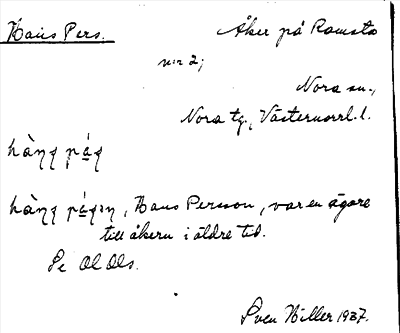 Hans Pers.
Åker på Ramsta
nr 2;
Nora sn.,
Nora tg., Västernorrl. l.
, Hans Persson, var en ägare
till åkern i äldre tid.
Se Ol Ols.
Sven Hiller 1937.